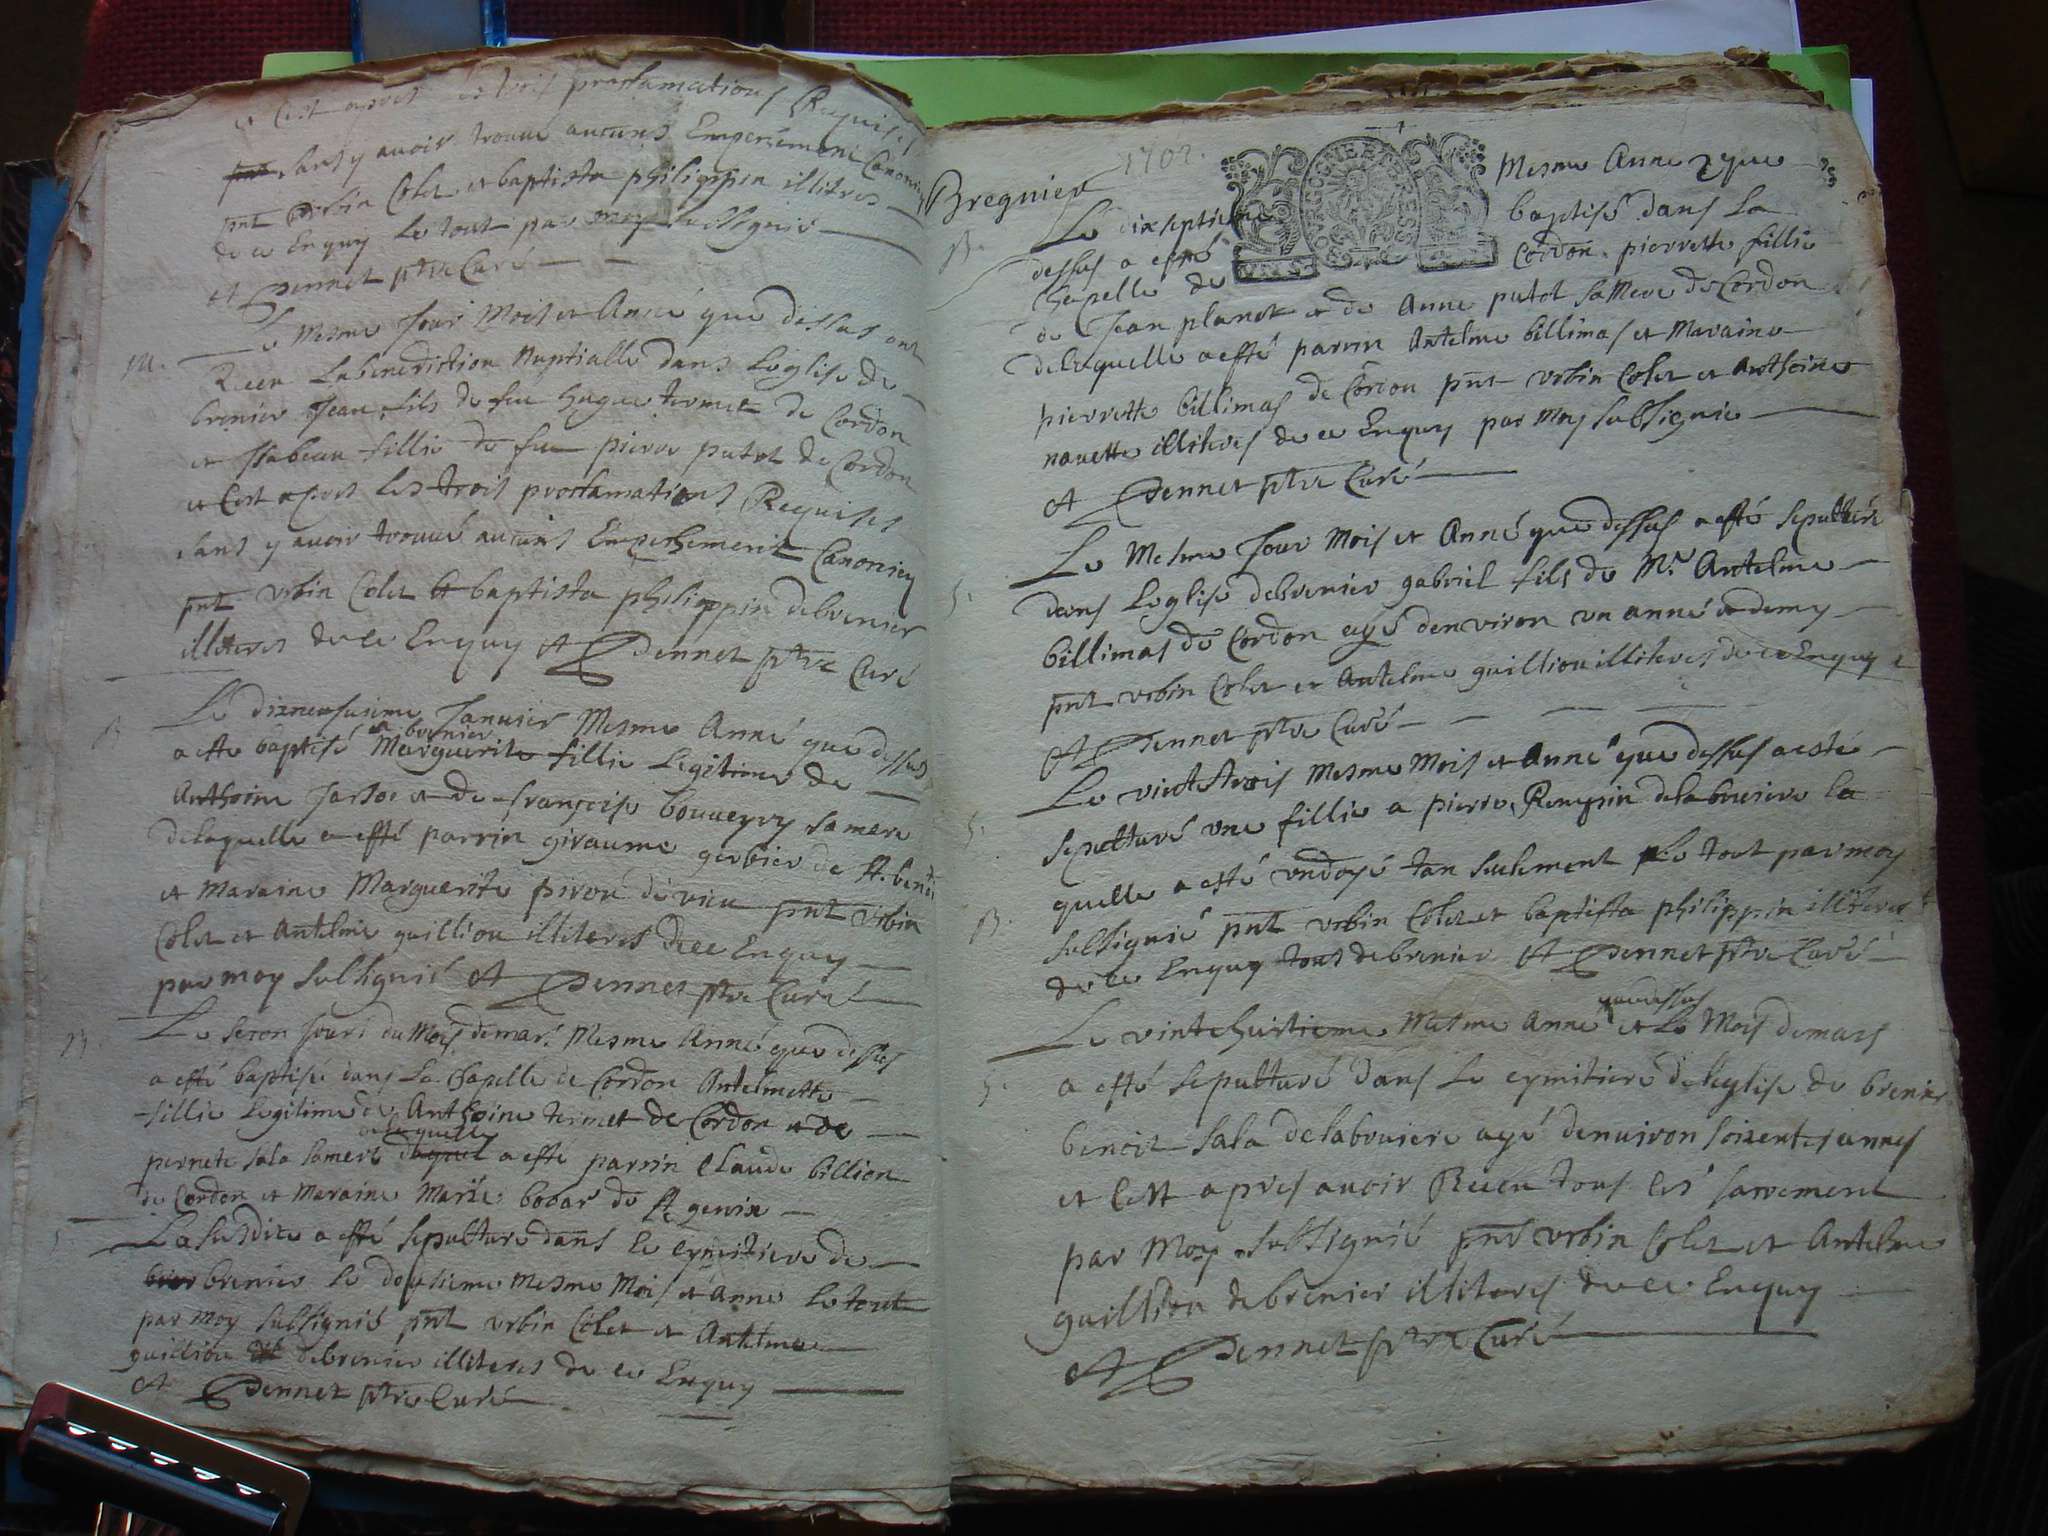 et Cest apres les trois proclamations Requises
sans y avoir trouve aucuns Empechement Canonicq
pnt vrbin Colet et baptista philippin illitres
de ce Enquy Le tout par moy subsignie
A Dennet ptre Curé
M.
Le Mesme Jour Mois et Anné que dessus ont
Receu La benediction Nuptialle dans Leglise de
brenier Jean fils de feu hugue termet de Cordon
et Isabeau fillie de feu pierre putot de Cordon
et Cest apres les trois proclamations Requises
sans y avoir trouué aucuns Empechement Canonicq
pnt vrbin Colet et baptista philippin debrenier
illiteres de ce Enquy A Dennet ptre Curé
B.
Le dixneufuieme Januier Mesme Anné que dessus
a brenier
a esté baptisé Marguerite fillie Legitime de
Anthoine Jarsoc et de françoise bouueyry samere
de laquelle a esté parrin giraume gerbier de St. benoi
et Maraine Marguerite piron de vieu pnt vrbin
Colet et Antelme guillion illiteres de ce Enquy
par moy subsignié A Dennet ptre Curé
B.
Le secon Jours du Mois demars Mesme Anné que dessus
a esté baptisé dans La Chapelle de Cordon Antelmette
fillie Legitime de Anthoine termet de Cordon et de
de laquelle
pernete sala samere duquel a esté parrin Claude billion
de Cordon et Maraine Marie bobar de St genix
La susdite a esté sepulture dans le cymitiere de
brenier le douzieme Mesme Mois et Anné Le tout
par moy subsignié pnt vrbin Colet et Antelme
guillion debrenier illiteres de ce Enquy
A Dennet ptre Curé
1702.
Bregnier
B.
Le dixseptieme Mesme Anne que
dessus a esté baptisé dans La
Chapelle de Cordon pierrette fillie
de Jean planet et de Anne putot saMere de Cordon
delaquelle a esté parrin Antelme billimas et Maraine
pierrette billimas de Cordon pnt vrbin Colet et Anthoine
nauette illiteres de ce Enquy par Moy subsignie
A Dennet ptre Curé
S.
Le Mesme Jour Mois et Anné que dessus a esté sepulturé
dans Leglise debrenier gabriel fils de Mr. Antelme
billimas de Cordon agé denviron vn anné et demy
pnt vrbin Colet et Antelme guillion illiteres de ce Enquy
A Dennet ptre Curé
S.
Le vintetrois Mesme Mois et Anné que dessus a esté
sepulturé vne fillie a pierre Reuyrin delabruiere la
quelle a esté vndoyé tan seulement Le tout par moy
B.
subsignié pnt vrbin Colet et baptista philippin illiteres
de ce Enquy tous debrenier A Dennet ptre Curé
que dessus
Le vintehuitieme Mesme Anné et Le Mois demars
S.
a esté sepulturé dans Le cymitiere deleglise de brenier
benoit sala delabruiere agé denuiron soixentes annes
et Cest apres auoir Receu tous les sacrement
par Moy subsignié pnt vrbin Colet et Antelme
guillion debrenier illiteres de ce Enquy
A Dennet ptre Curé